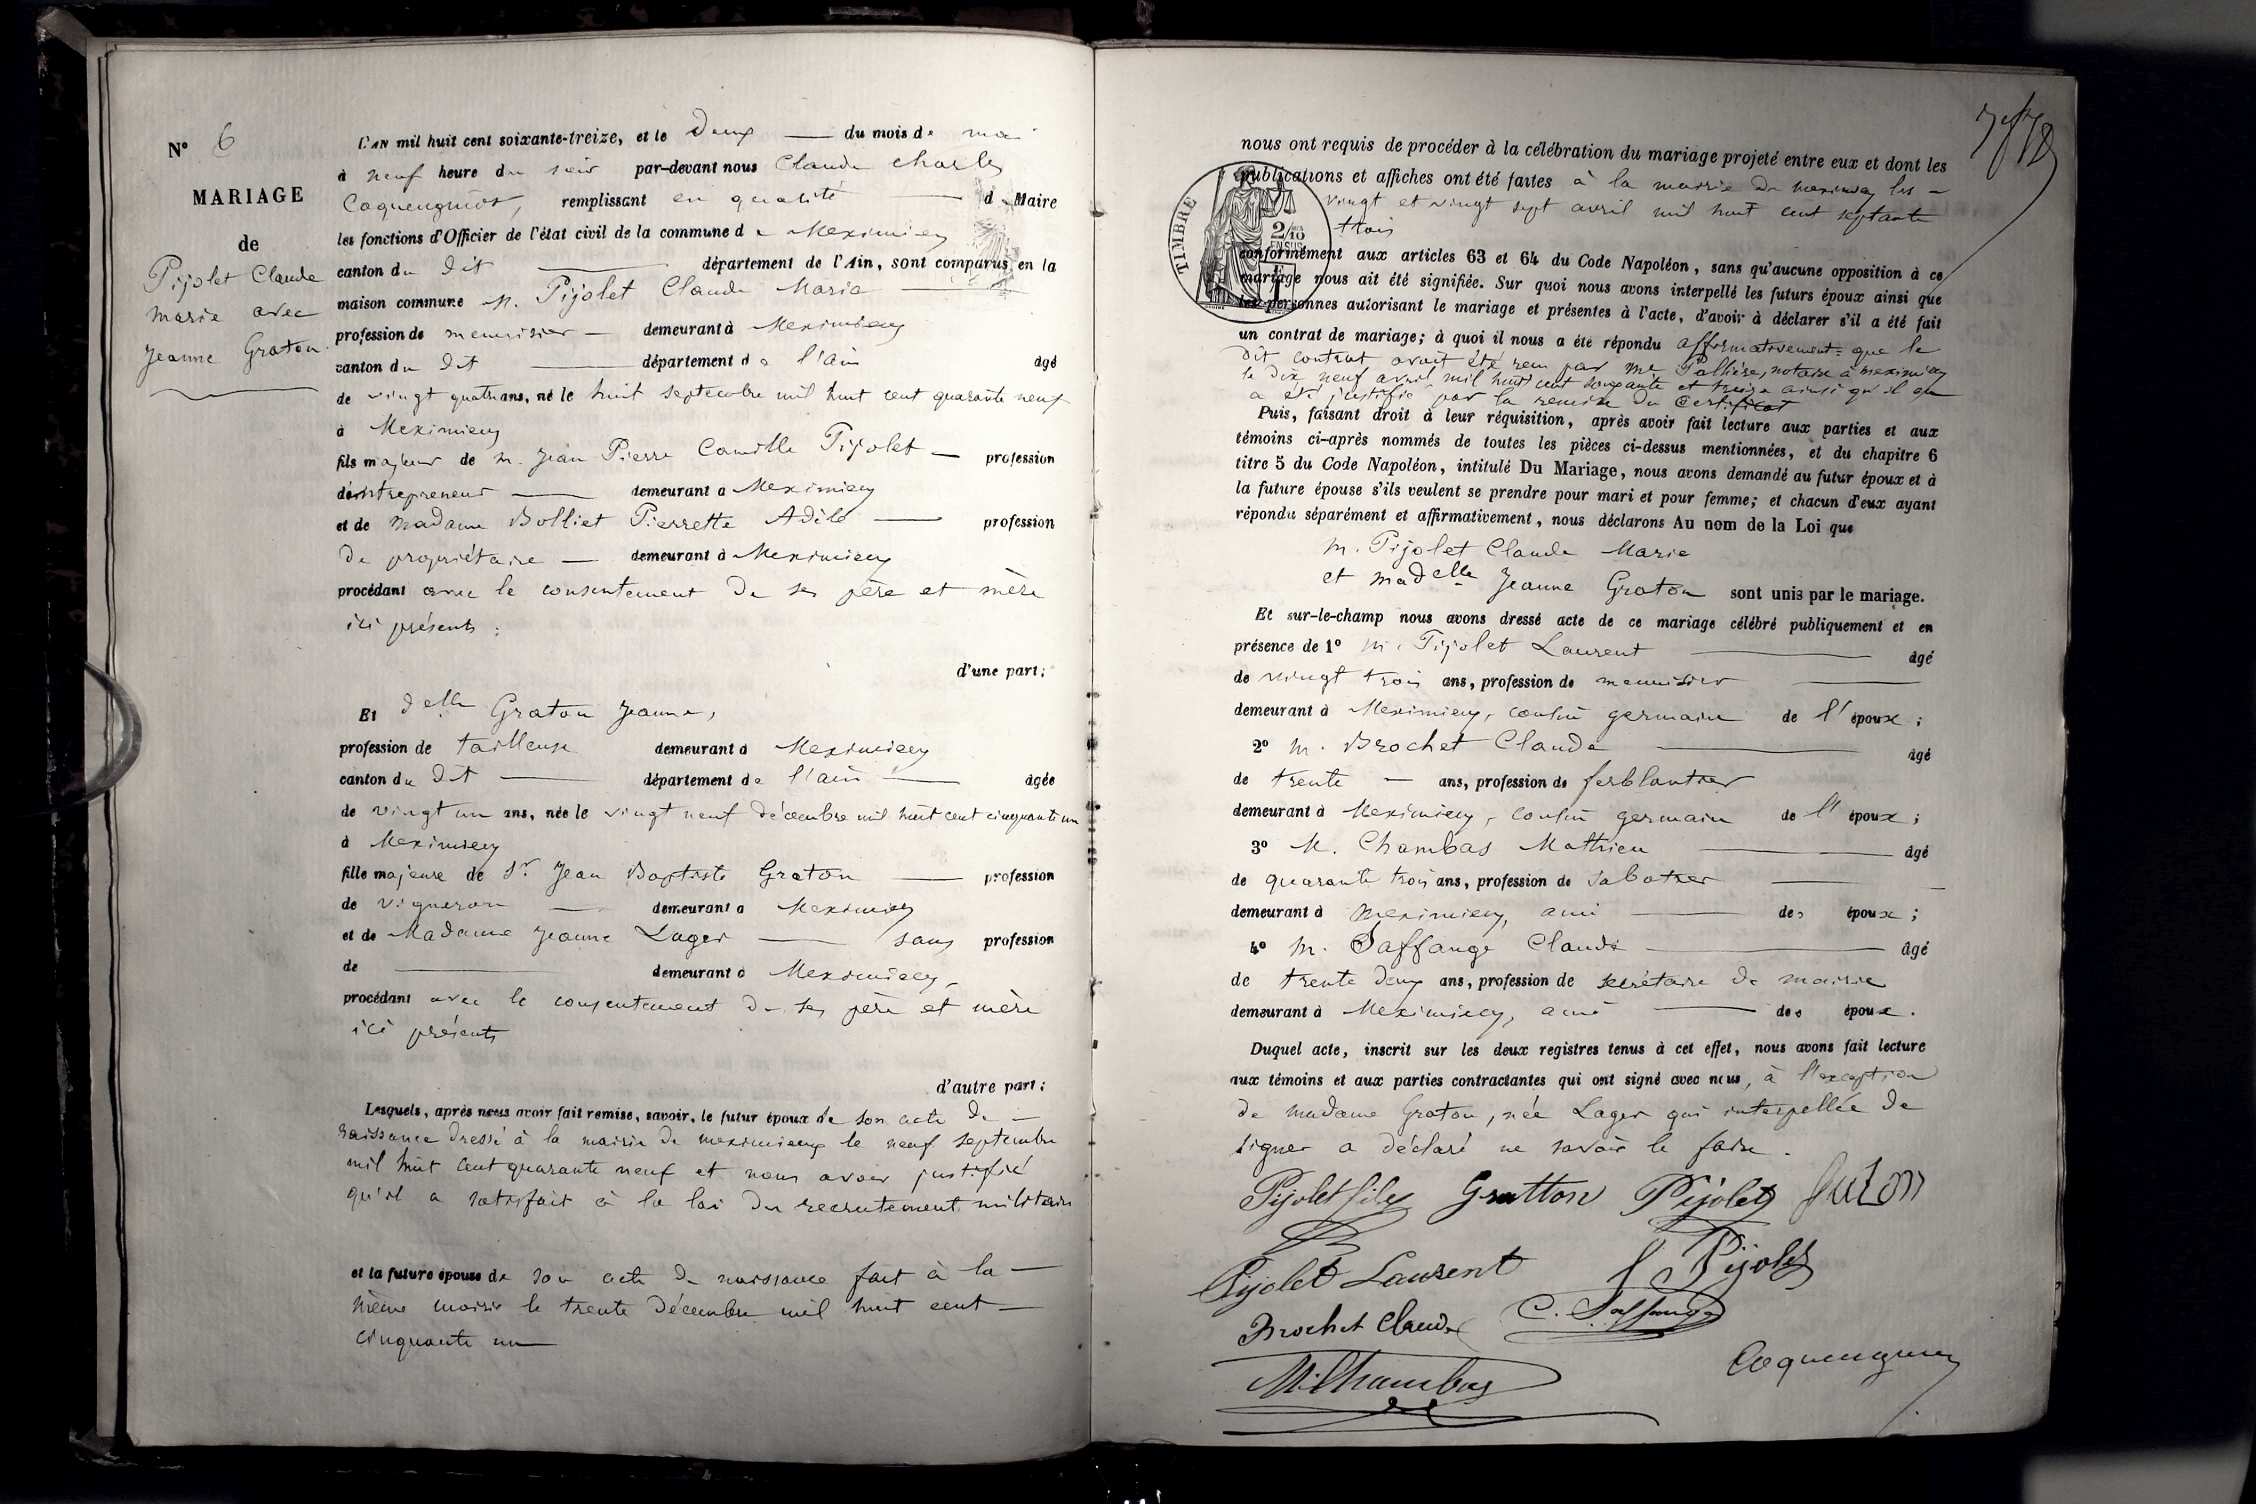 N° 6
MARIAGE
de
Pijolet Claude
marie avec
Jeanne Graton
L'AN mil huit cent soixante-treize, et le Deux du mois de mai
à neuf heure du soir par-devant nous Claude Charles
Coquengniot, remplissant en qualité de Maire
les fonctions d'Officier de l'état civil de la commune de Meximieux
canton du dit département de l'Ain, sont comparus en la
maison commune M. Pijolet Claude Marie
profession de menuisier demeurant à Meximieux
canton du dit département de l'ain âgé
de vingt quatre ans, né le huit septembre mil huit cent quarante neuf
à Meximieux
fils majeur de M. Jean Pierre Camille Pijolet profession
d'entrepreneur demeurant à Meximieux
et de Madame Bolliet Pierrette Adèle profession
de propriétaire demeurant à Meximieux
procédant avec le consentement de ses père et mère
ici présents ;
d'une part ;
Et delle Graton Jeanne,
profession de tailleuse demeurant à Meximieux
canton du dit département de l'ain âgée
de vingt un ans, née le vingt neuf décembre mil huit cent cinquante un
à Meximieux
fille majeure de Sr Jean Baptiste Graton profession
de vigneron demeurant à Meximieux
et de Madame Jeanne Lager sans profession
de demeurant à Meximieux,
procédant avec le consentement de ses père et mère
ici présents
d'autre part ;
Lesquels, après nous avoir fait remise, savoir, le futur époux de son acte de
naissance dressé à la mairie de meximieux le neuf septembre
mil huit cent quarante neuf et nous avoir justifié
qu'il a satisfait à la loi du recrutement militaire
et la future épouse de son acte de naissance fait à la
même mairie le trente décembre mil huit cent
cinquante un
nous ont requis de procéder à la célébration du mariage projeté entre eux et dont les
publications et affiches ont été faites à la mairie de meximieux les
vingt et vingt sept avril mil huit cent septante
trois
TIMBRE
2/10
EN SUS
conformément aux articles 63 et 64 du Code Napoléon, sans qu'aucune opposition à ce
mariage nous ait été signifiée. Sur quoi nous avons interpellé les futurs époux ainsi que
les personnes autorisant le mariage et présentes à l'acte, d'avoir à déclarer s'il a été fait
un contrat de mariage ; à quoi il nous a été répondu affirmativement : que le
dit contrat avait été reçu par Me Palhière, notaire à meximieux
le dix neuf avril mil huit cent soixante et treize ainsi qu'il en
a été justifié par la remise du certificat
Puis, faisant droit à leur réquisition, après avoir fait lecture aux parties et aux
témoins ci-après nommés de toutes les pièces ci-dessus mentionnées, et du chapitre 6
titre 5 du Code Napoléon, intitulé Du Mariage, nous avons demandé au futur époux et à
la future épouse s'ils veulent se prendre pour mari et pour femme ; et chacun d'eux ayant
répondu séparément et affirmativement, nous déclarons Au nom de la Loi que
M. Pijolet Claude Marie
et madelle Jeanne Graton sont unis par le mariage.
Et sur-le-champ nous avons dressé acte de ce mariage célébré publiquement et en
présence de 1° M. Pijolet Laurent âgé
de vingt trois ans, profession de menuisier
demeurant à Meximieux, cousin germain de l'époux ;
2° M. Brochet Claude âgé
de trente ans, profession de ferblantier
demeurant à Meximieux, cousin germain de l'époux ;
3° M. Chambas Mathieu âgé
de quarante trois ans, profession de sabotier
demeurant à meximieux, ami des époux ;
4° M. Saffange Claude âgé
de trente deux ans, profession de secrétaire de mairie
demeurant à Meximieux, ami des époux.
Duquel acte, inscrit sur les deux registres tenus à cet effet, nous avons fait lecture
aux témoins et aux parties contractantes qui ont signé avec nous, à l'exception
de madame Graton, née Lager qui interpellée de
signer a déclaré ne savoir le faire.
Pijolet fils Gratton Pijolet
Pijolet Laurent Pijolet
Brochet Claude C. Saffange
M. Chambas